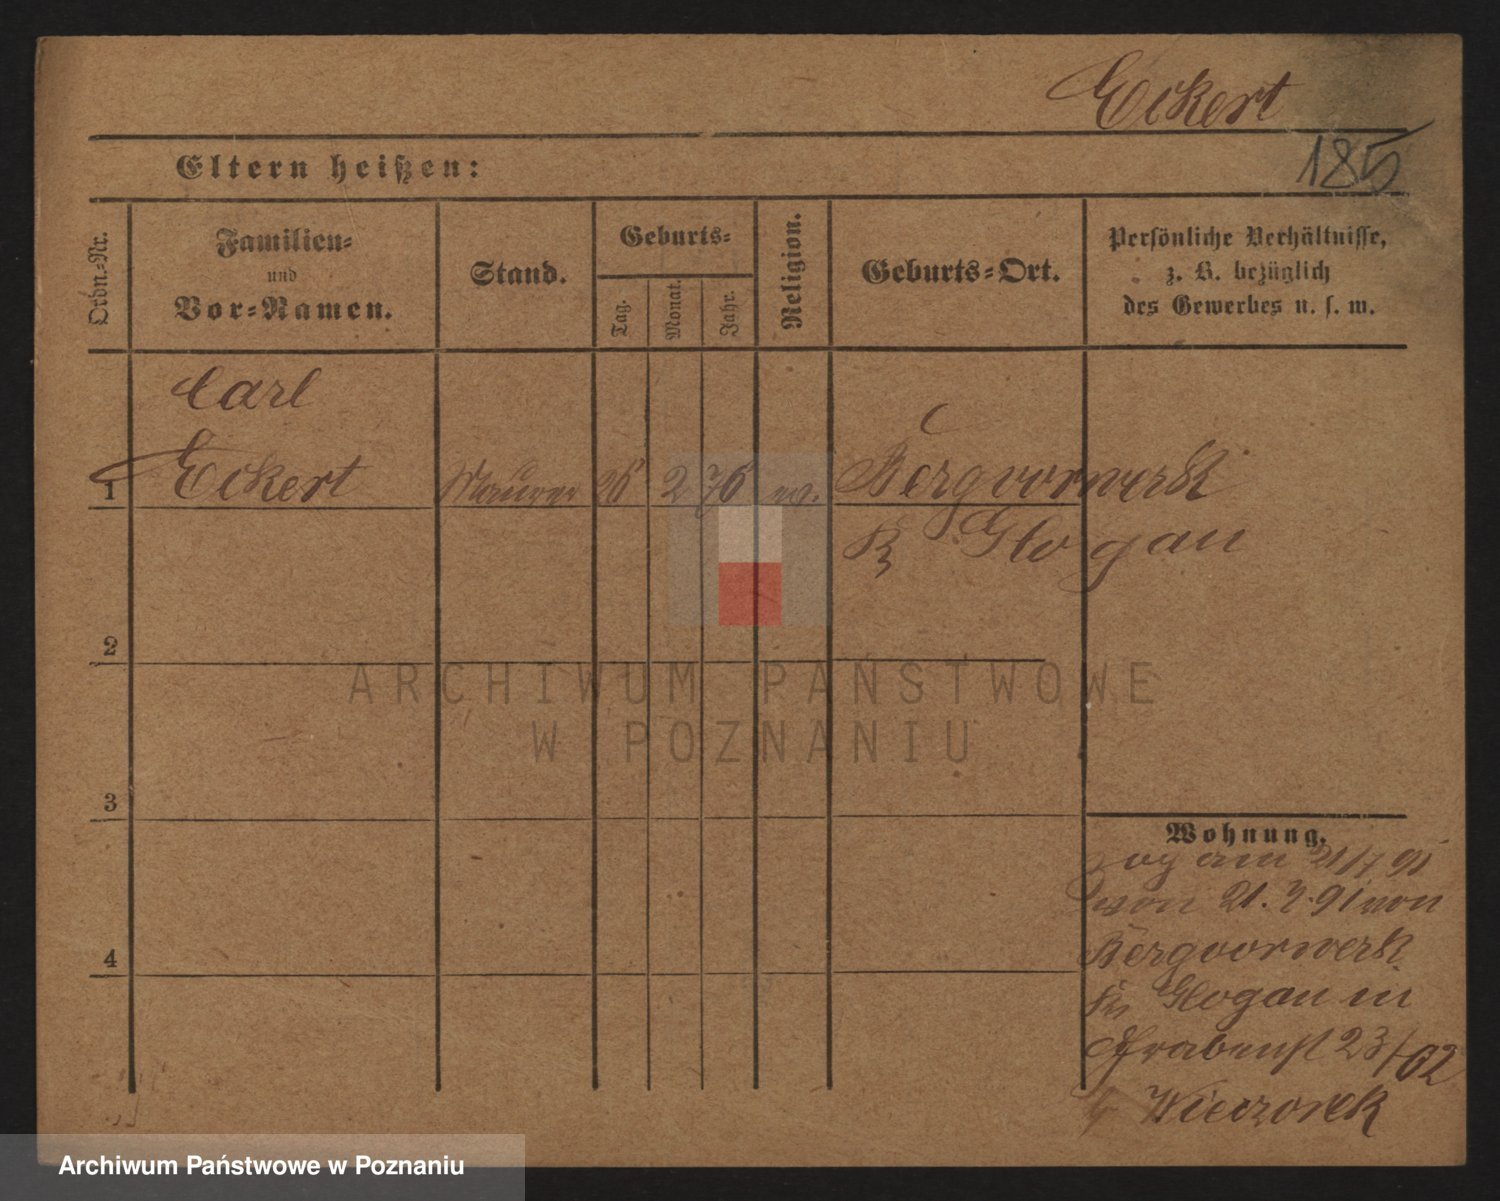 Eckert
185
Eltern heißen:
Ordn.-Nr.
Familien-
und
Vor-Namen.
Stand.
Geburts-
Tag.
Monat.
Jahr.
Religion.
Geburts-Ort.
Persönliche Verhältnisse,
z. B. bezüglich
des Gewerbes u. s. w.
Carl
1 Eckert Maurer 2 76 Bergvorwerk
Glogau
2
ARCHIWUM PAŃSTWOWE
W POZNANIU
3
Wohnung.
zog am 21/7 91
von 21. 7. 91 von
4
Bergvorwerk
Glogau in
Grabenst 23/
Wieczorek
Archiwum Państwowe w Poznaniu